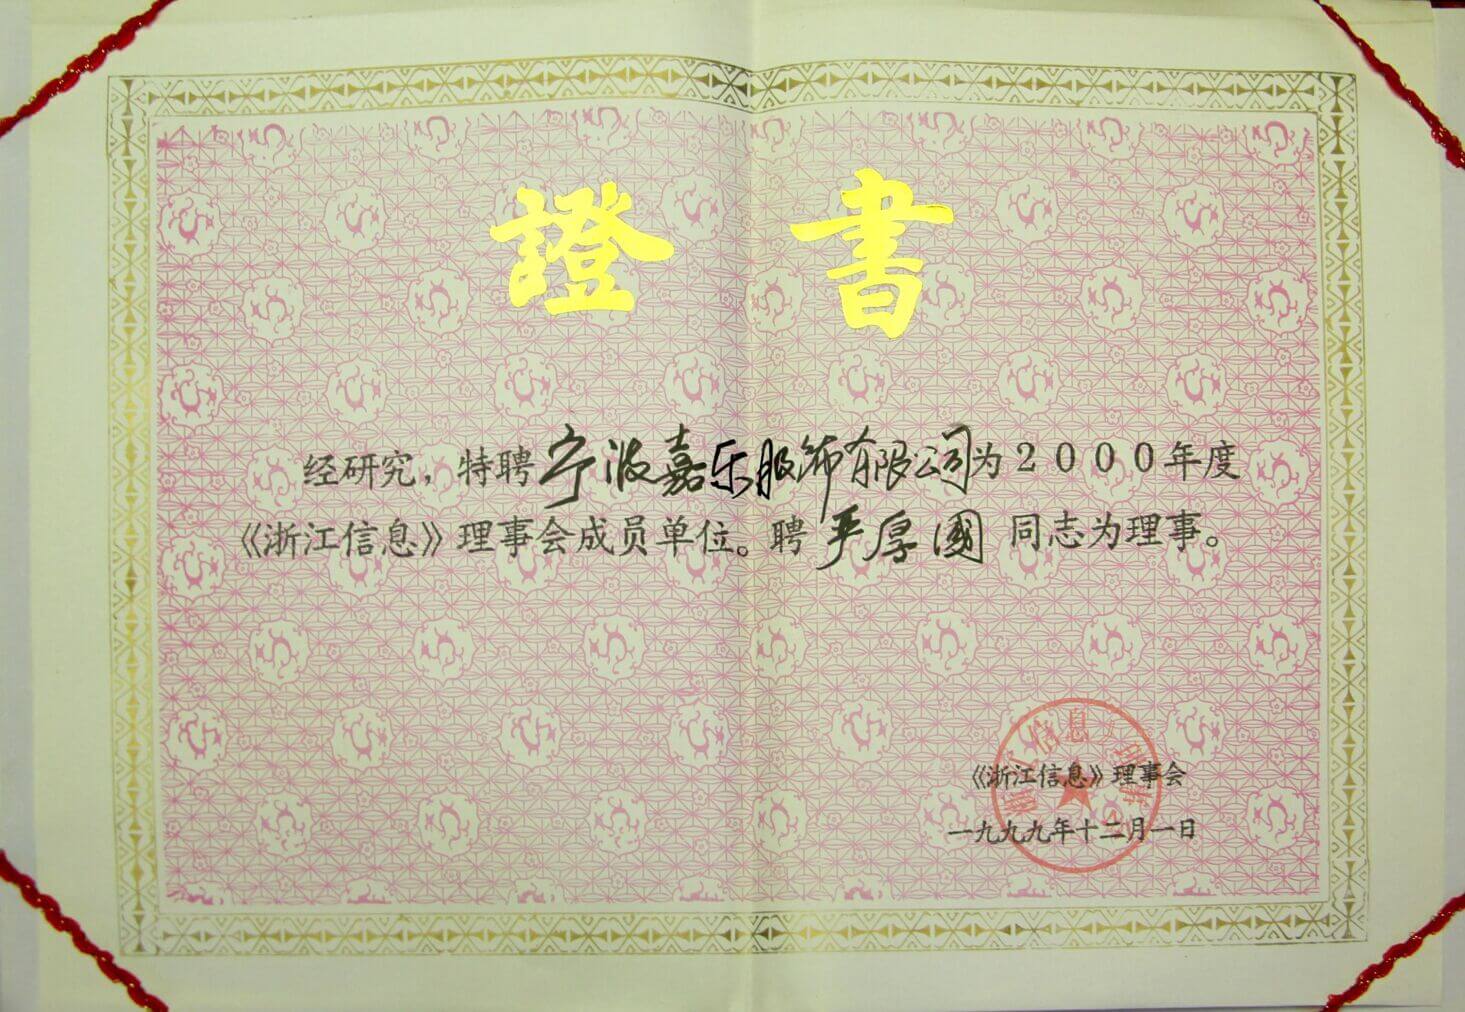 證書
经研究，特聘宁波嘉乐服饰有限公司为2000年度
《浙江信息》理事会成员单位。聘严厚國同志为理事。
《浙江信息》理事会
一九九九年十二月一日
信息